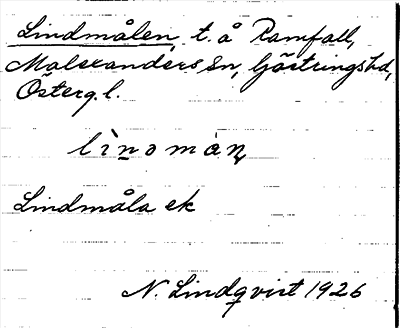 Lindmålen, t. å Ramfall,
Malexanders sn, Göstringshd,
Österg.l.
lìnəmàn̥
Lindmåla ek
N. Lindqvist 1926